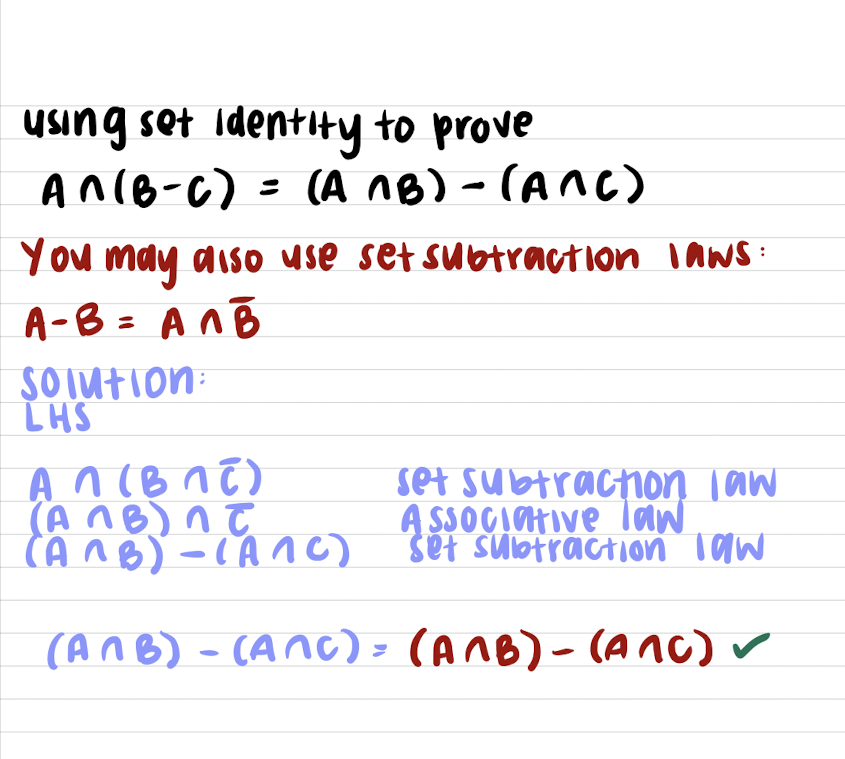 using set identity to prove
A ∩ (B - C) = (A ∩ B) - (A ∩ C)
You may also use set subtraction laws:
A - B = A ∩ B̅
Solution:
LHS
A ∩ (B ∩ C̅) set subtraction law
(A ∩ B) ∩ C̅ Associative law
(A ∩ B) - (A ∩ C) set subtraction law
(A ∩ B) - (A ∩ C) = (A ∩ B) - (A ∩ C) ✓